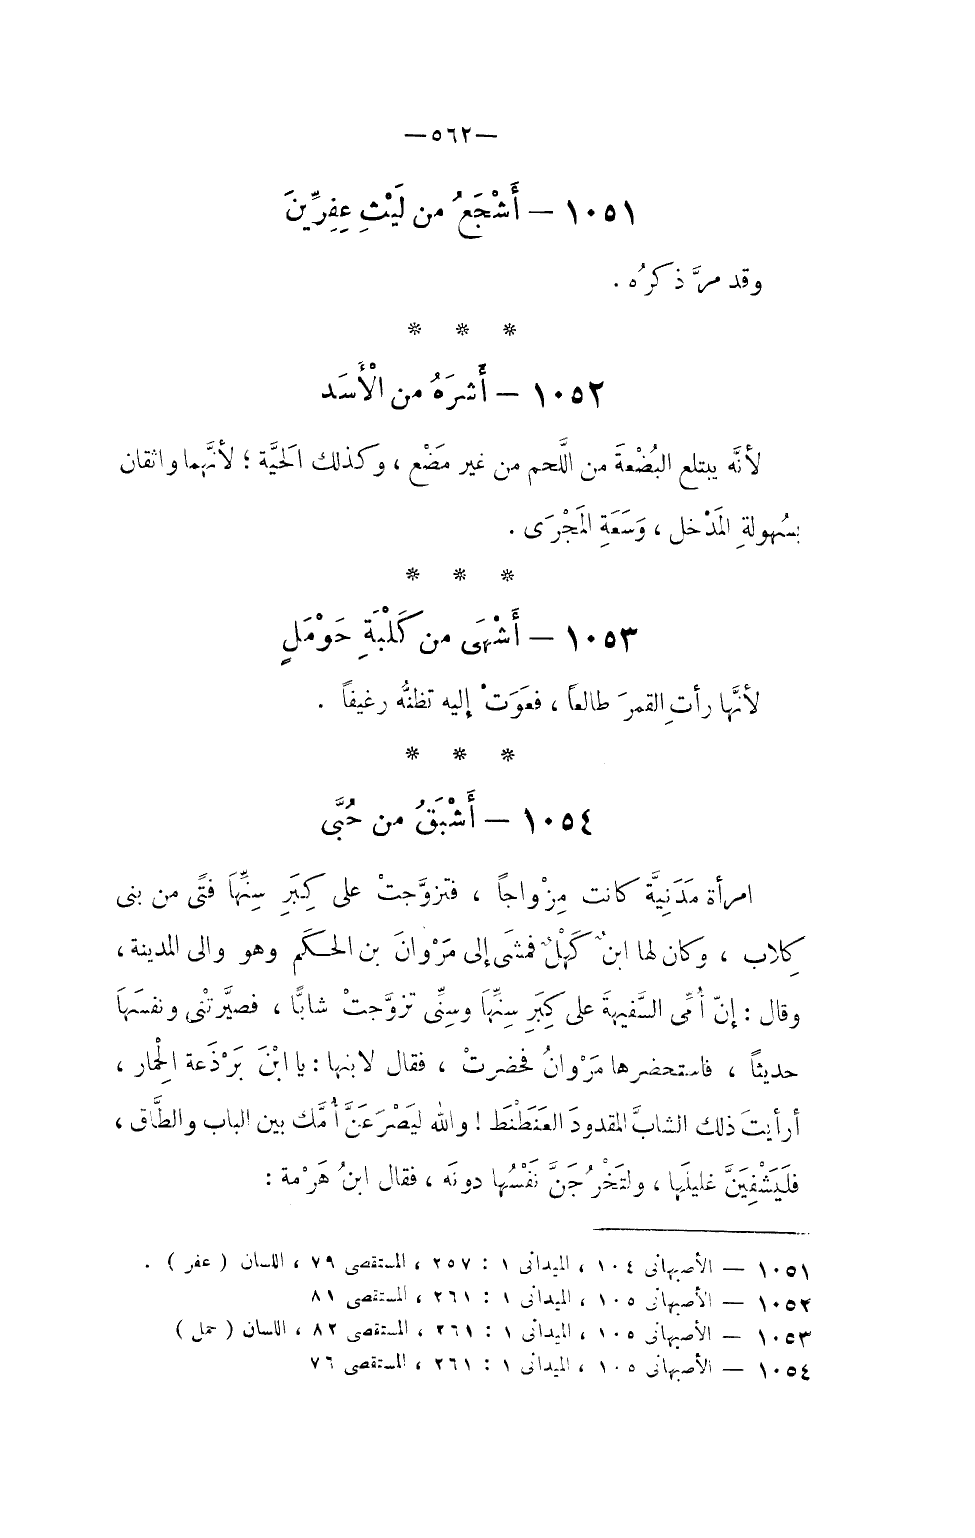 —٥٦٢—
١٠٥١ — أَشْجَعُ من لَيْثِ عِفِرِّينَ
وقد مرَّ ذكرُه .
* * *
١٠٥٢ — أَشرَهُ من الْأَسَد
لأنَّه يبتلع البُضْعةَ من اللَّحم من غير مَضْع ، وكذلك الحَيَّة ؛ لأنَّهما واثقان
بسُهولةِ المَدْخل ، وَسَعَةِ المَجْرَى .
* * *
١٠٥٣ — أَشْهَى من كَلْبَةِ حَوْمَلٍ
لأنَّها رأتِ القمرَ طالعاً ، فعَوَتْ إليه تظنُّه رغيفاً .
* * *
١٠٥٤ — أَشْبَقُ من حُبَّى
امرأة مَدَنِيَّة كانت مِزْواجاً ، فتزوَّجتْ على كِبَرِ سِنِّهَا فتًى من بنى
كِلاب ، وكان لها ابنٌ كَهْلٌ فمشَى إلى مَرْوانَ بن الحكَم وهو والى المدينة ،
وقال : إنّ أُمِّى السَّفيهةَ على كِبَرِ سِنِّهَا وسِنِّى تزوَّجتْ شابًّا ، فصيَّرتْنى ونفسَها
حديثاً ، فاستحضرها مَرْوانُ فحضرتْ ، فقال لابنها : يا ابْنَ بَرْذَعة الحِمار ،
أرأيتَ ذلك الشابَّ المقدودَ العَنَطْنَط ! والله ليَصْرَعَنَّ أُمَّك بين الباب والطَّاق ،
فلَيَشْفِيَنَّ غليلَها ، ولتَخْرُجَنَّ نَفْسُها دونَه ، فقال ابنُ هَرْمة :
١٠٥١ — الأصبهانى ١٠٤ ، الميدانى ١ : ٢٥٧ ، المستقصى ٧٩ ، اللسان ( عفر ) .
١٠٥٢ — الأصبهانى ١٠٥ ، الميدانى ١ : ٢٦١ ، المستقصى ٨١
١٠٥٣ — الأصبهانى ١٠٥ ، الميدانى ١ : ٢٦١ ، المستقصى ٨٢ ، اللسان ( حمل )
١٠٥٤ — الأصبهانى ١٠٥ ، الميدانى ١ : ٢٦١ ، المستقصى ٧٦